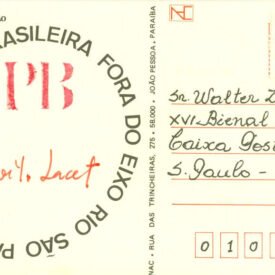 BRASILEIRA FORA DO EIXO RIO SÃO PA
PB
Lacet
NAC • RUA DAS TRINCHEIRAS, 275 • 58.000 • JOÃO PESSOA, PARAÍBA
Sr. Walter Z
XVI Bienal
Caixa Pos
S. Paulo -
0 1 0